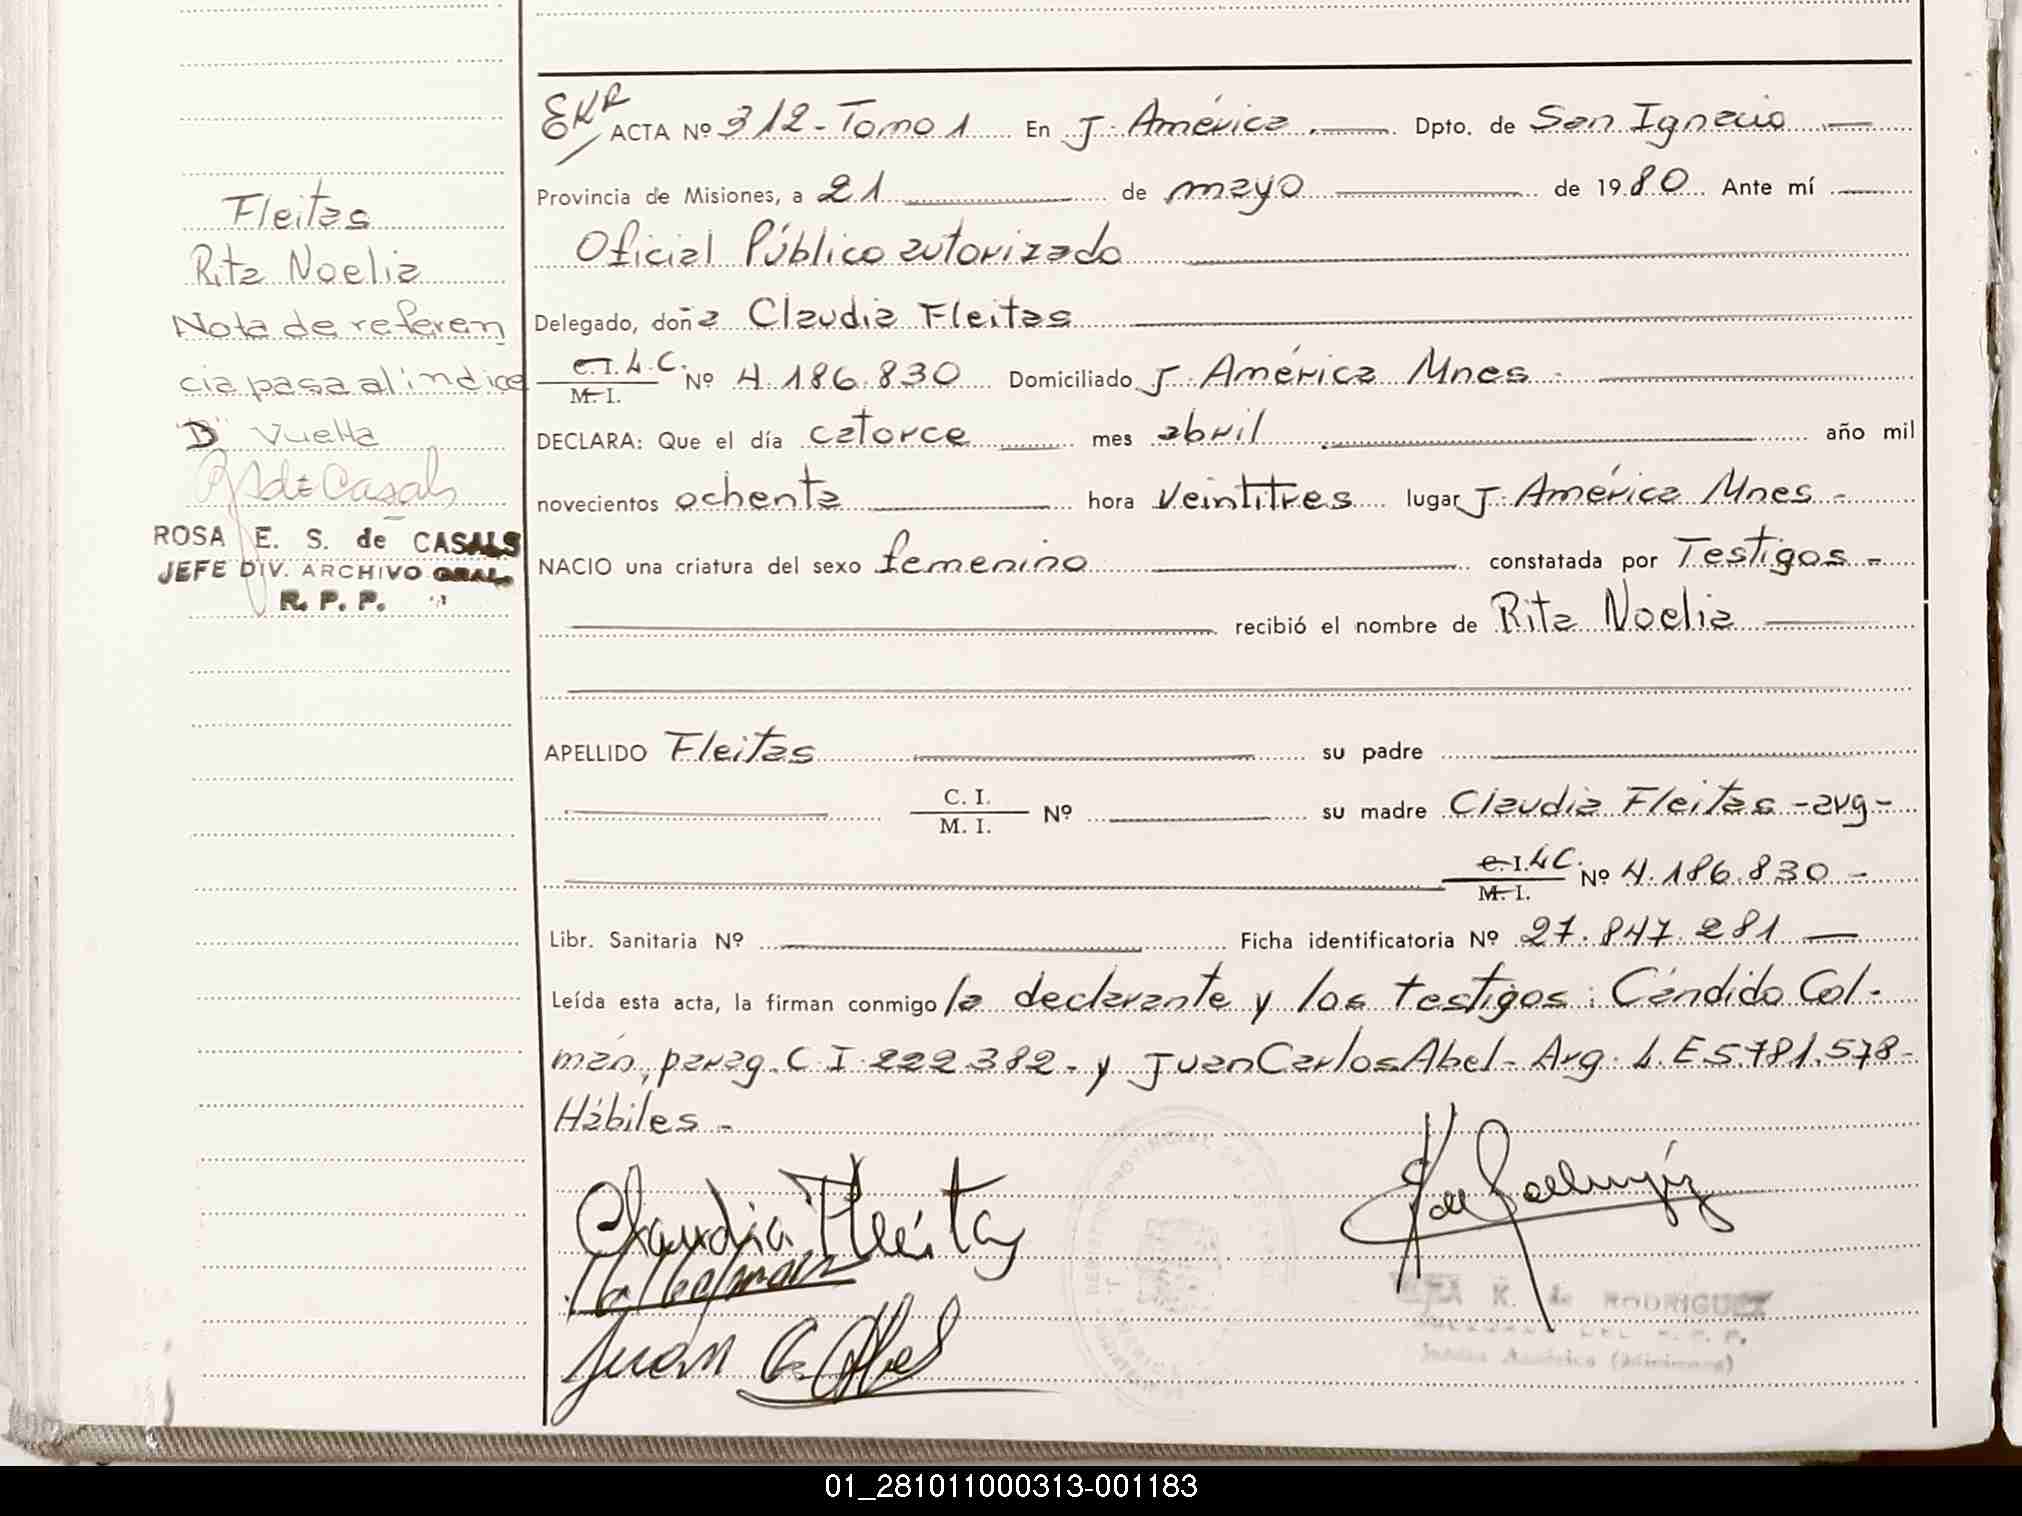 EKR
ACTA Nº 312 - Tomo 1 En J. América. Dpto. de San Ignacio
Provincia de Misiones, a 21 de mayo de 1980 Ante mí
Oficial Público autorizado
Delegado, doña Claudia Fleitas
C.I. L.C.
M.I. Nº 4.186.830 Domiciliado J. América Mnes.
DECLARA: Que el día catorce mes abril año mil
novecientos ochenta hora veintitres lugar J. América Mnes -
NACIO una criatura del sexo femenino constatada por Testigos -
recibió el nombre de Rita Noelia
APELLIDO Fleitas su padre
C. I.
M. I. Nº su madre Claudia Fleitas - arg -
C.I. L.C.
M.I. Nº 4.186.830 -
Libr. Sanitaria Nº Ficha identificatoria Nº 27.847.281
Leída esta acta, la firman conmigo la declarante y los testigos: Cándido Col-
mán, parag. C.I. 222.382 - y Juan Carlos Abel - Arg. L.E 5.781.578 -
Hábiles -
Claudia Fleitas
Juan C. Abel
K. de RODRIGUEZ
Fleitas
Rita Noelia
Nota de referen
cia pasa al indice
"D" Vuelta
RS de Casals
ROSA E. S. de CASALS
JEFE DIV. ARCHIVO GRAL.
R. P. P.
01_281011000313-001183